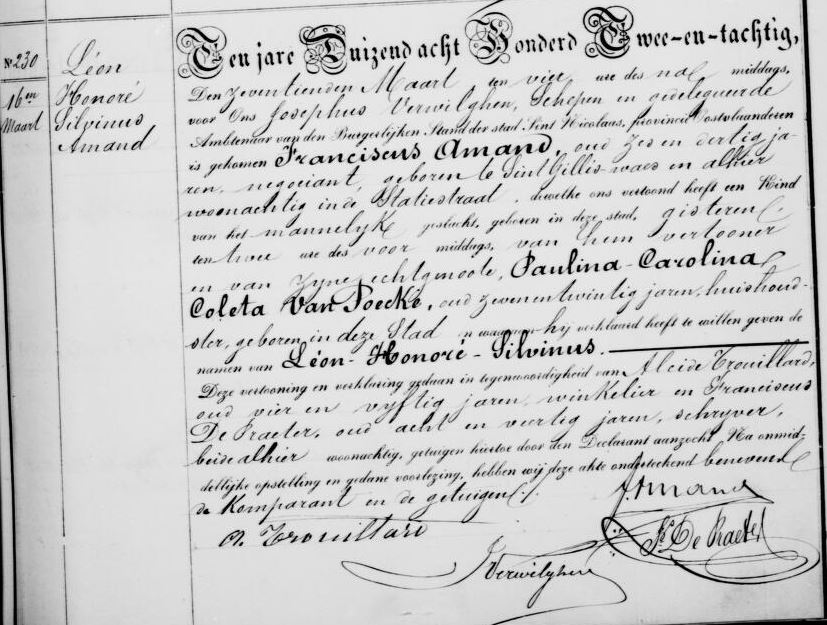 N° 230
16en
Maart
Léon
Honoré
Silvinus
Amand
Ten jare Duizend acht Honderd Twee-en-tachtig,
Den zeventienden Maart ten vier ure des na middags,
voor Ons Josephus Verwilghen, Schepen en gedelegueerde
Ambtenaar van den Burgerlijken Stand der stad Sint Nicolaas, provincie Oostvlaanderen
is gekomen Franciscus Amand, oud zes en dertig ja-
ren, negociant, geboren te Sint Gillis-waes en alhier
woonachtig in de Statiestraat, dewelke ons vertoond heeft een Kind
van het mannelyk geslacht, geboren in deze stad, gisteren
ten twee ure des voor middags, van hem vertooner
en van zyne echtgenoote, Paulina-Carolina
Coleta Van Poecke, oud zevenentwintig jaren, huishoud-
ster, geboren in deze Stad en waaraan hy verklaard heeft te willen geven de
namen van Léon-Honoré-Silvinus.
Deze vertooning en verklaring gedaan in tegenwoordigheid van Alcide Trouillard,
oud vier en vyftig jaren, winkelier en Franciscus
De Praeter, oud acht en veertig jaren, schryver,
beide alhier woonachtig, getuigen hiertoe door den Declarant aanzocht. Na onmid-
dellijke opstelling en gedane voorlezing, hebben wij deze akte onderteekend benevens
de Komparant en de getuigen.
F Amand
A. Trouillard
Fs De Praeter
J Verwilghen